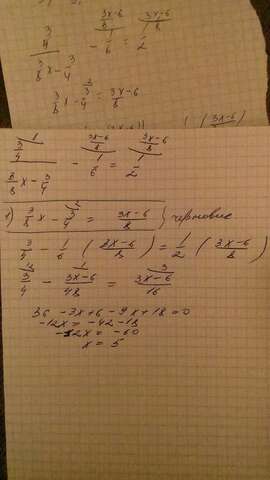 3/4 / (3/8 x - 3/4) - 1/6 = 1/2
3/8 x - 3/4 = (3x-6)/8
3/4 / (3/8 x - 3/4) - 1/6 = 1/2
1) 3/8 x - 3/4 = (3x-6)/8 } черновик
3/4 - 1/6 ( (3x-6)/8 ) = 1/2 ( (3x-6)/8 )
3/4 - (3x-6)/48 = (3x-6)/16
36 - 3x+6 - 9x+18 = 0
-12x = -42-18
-12x = -60
x = 5